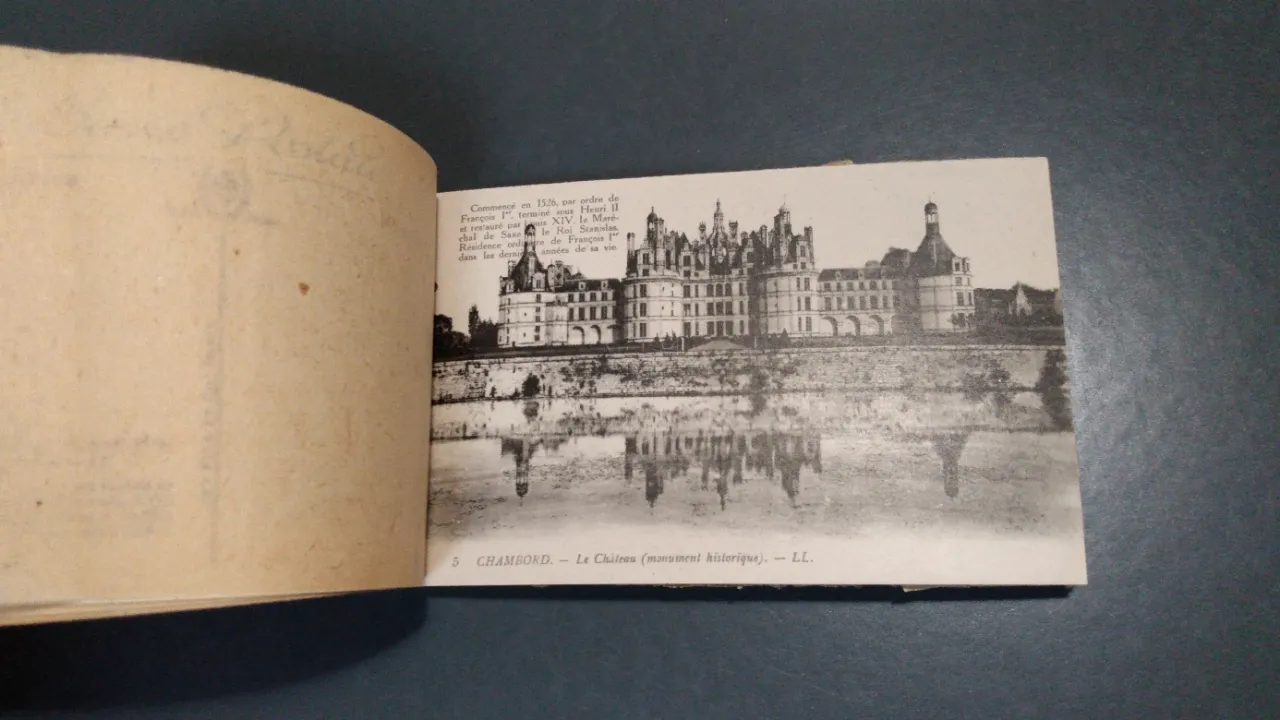 Commencé en 1526, par ordre de
François Iᵉʳ, terminé sous Henri II
et restauré par Louis XIV, le Maré-
chal de Saxe le Roi Stanislas.
Résidence de François Iᵉʳ
dans les années de sa vie
5 CHAMBORD. — Le Château (monument historique). — LL.